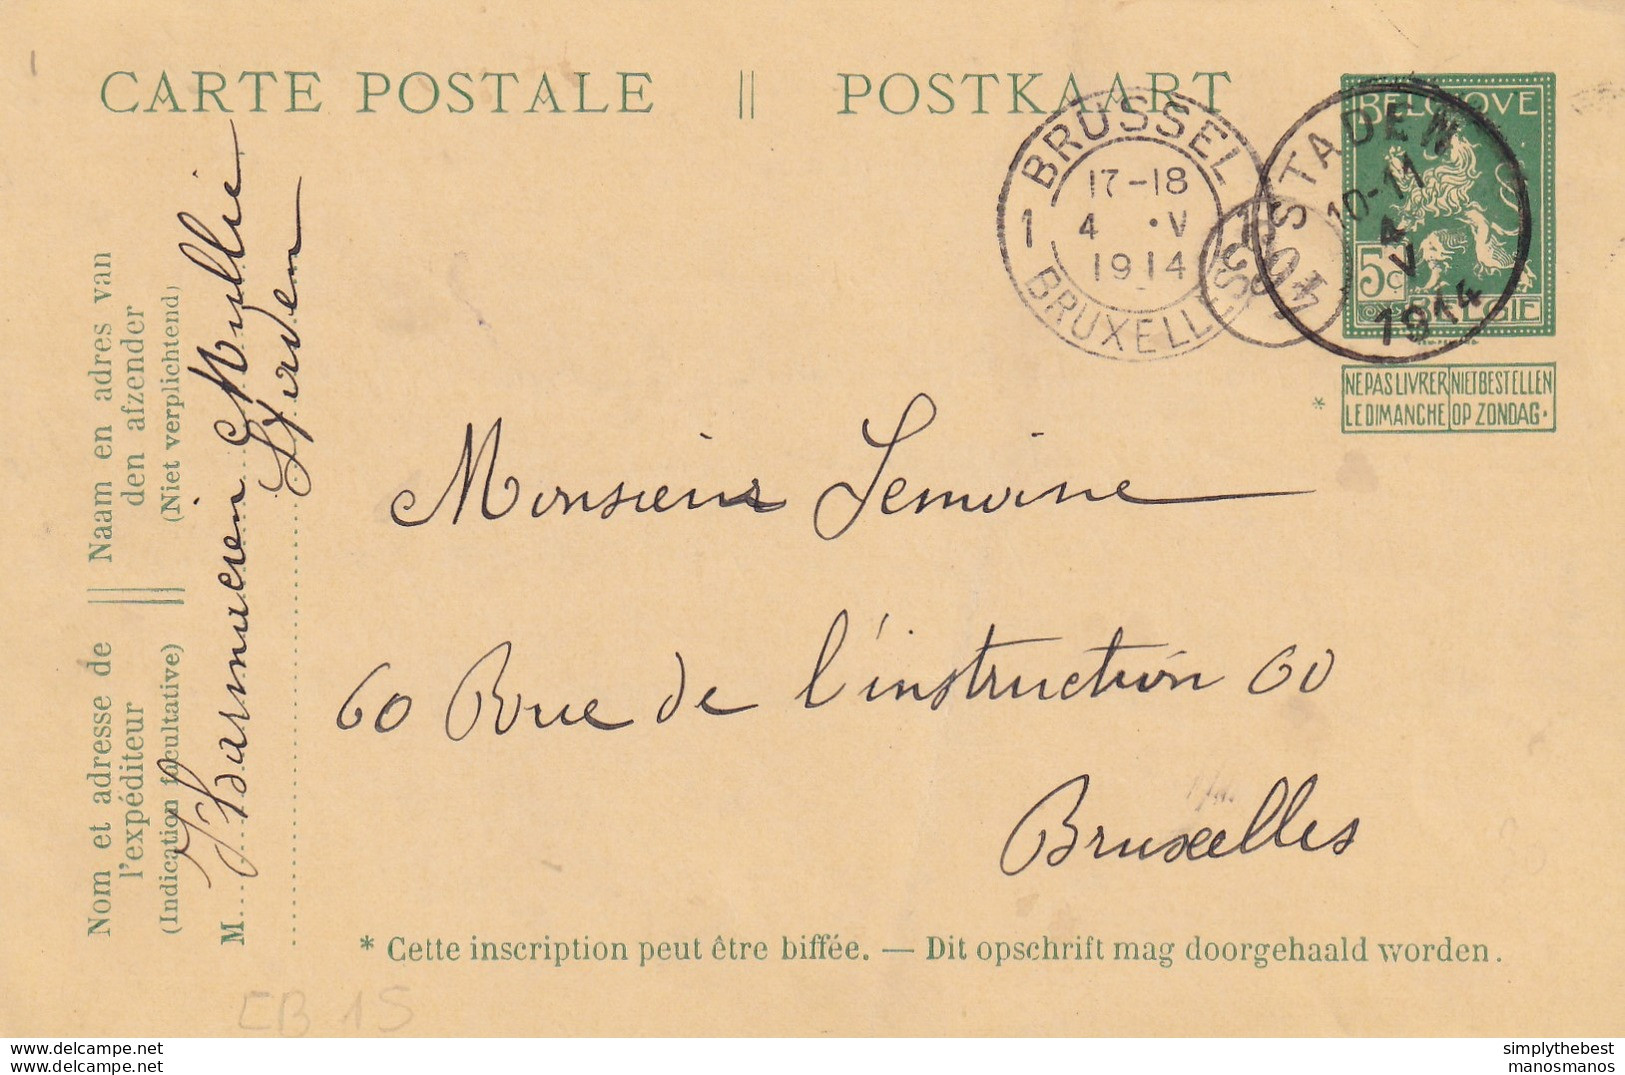 CARTE POSTALE || POSTKAART
BRUSSEL
17-18
4 ·V
1914
1 1
BRUXELLES
STADEN
10-11
4
V
1914
BELGIQUE
5c
BELGIE
NE PAS LIVRER NIET BESTELLEN
LE DIMANCHE OP ZONDAG.
*
Naam en adres van
den afzender
(Niet verplichtend)
Nom et adresse de
l'expéditeur
(Indication facultative)
M. Pharmacien Mullie
Staden
Monsieur Lemoine
60 Rue de l'instruction 60
Bruxelles
* Cette inscription peut être biffée. — Dit opschrift mag doorgehaald worden.
EB 15
delcampe.net
manosmanos
simplythebest
manosmanos